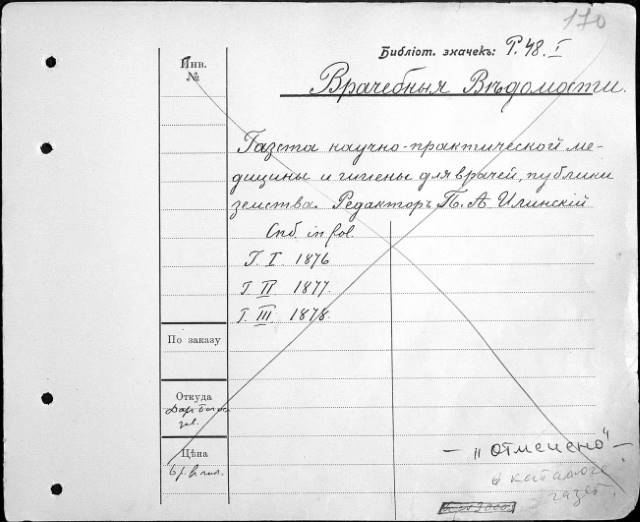 170
Библіот. значекъ: Р. 48. I
Инв.
№
Врачебныя Вѣдомости.
Газета научно-практической ме-
дицины и гигіены для врачей, публики
земства. Редакторъ П. А. Илинскій
Спб. in fol.
Т. I 1876
Т. II 1877.
Т. III. 1878.
По заказу
Откуда
Цѣна
— „отменено" —
в каталоге
газет.